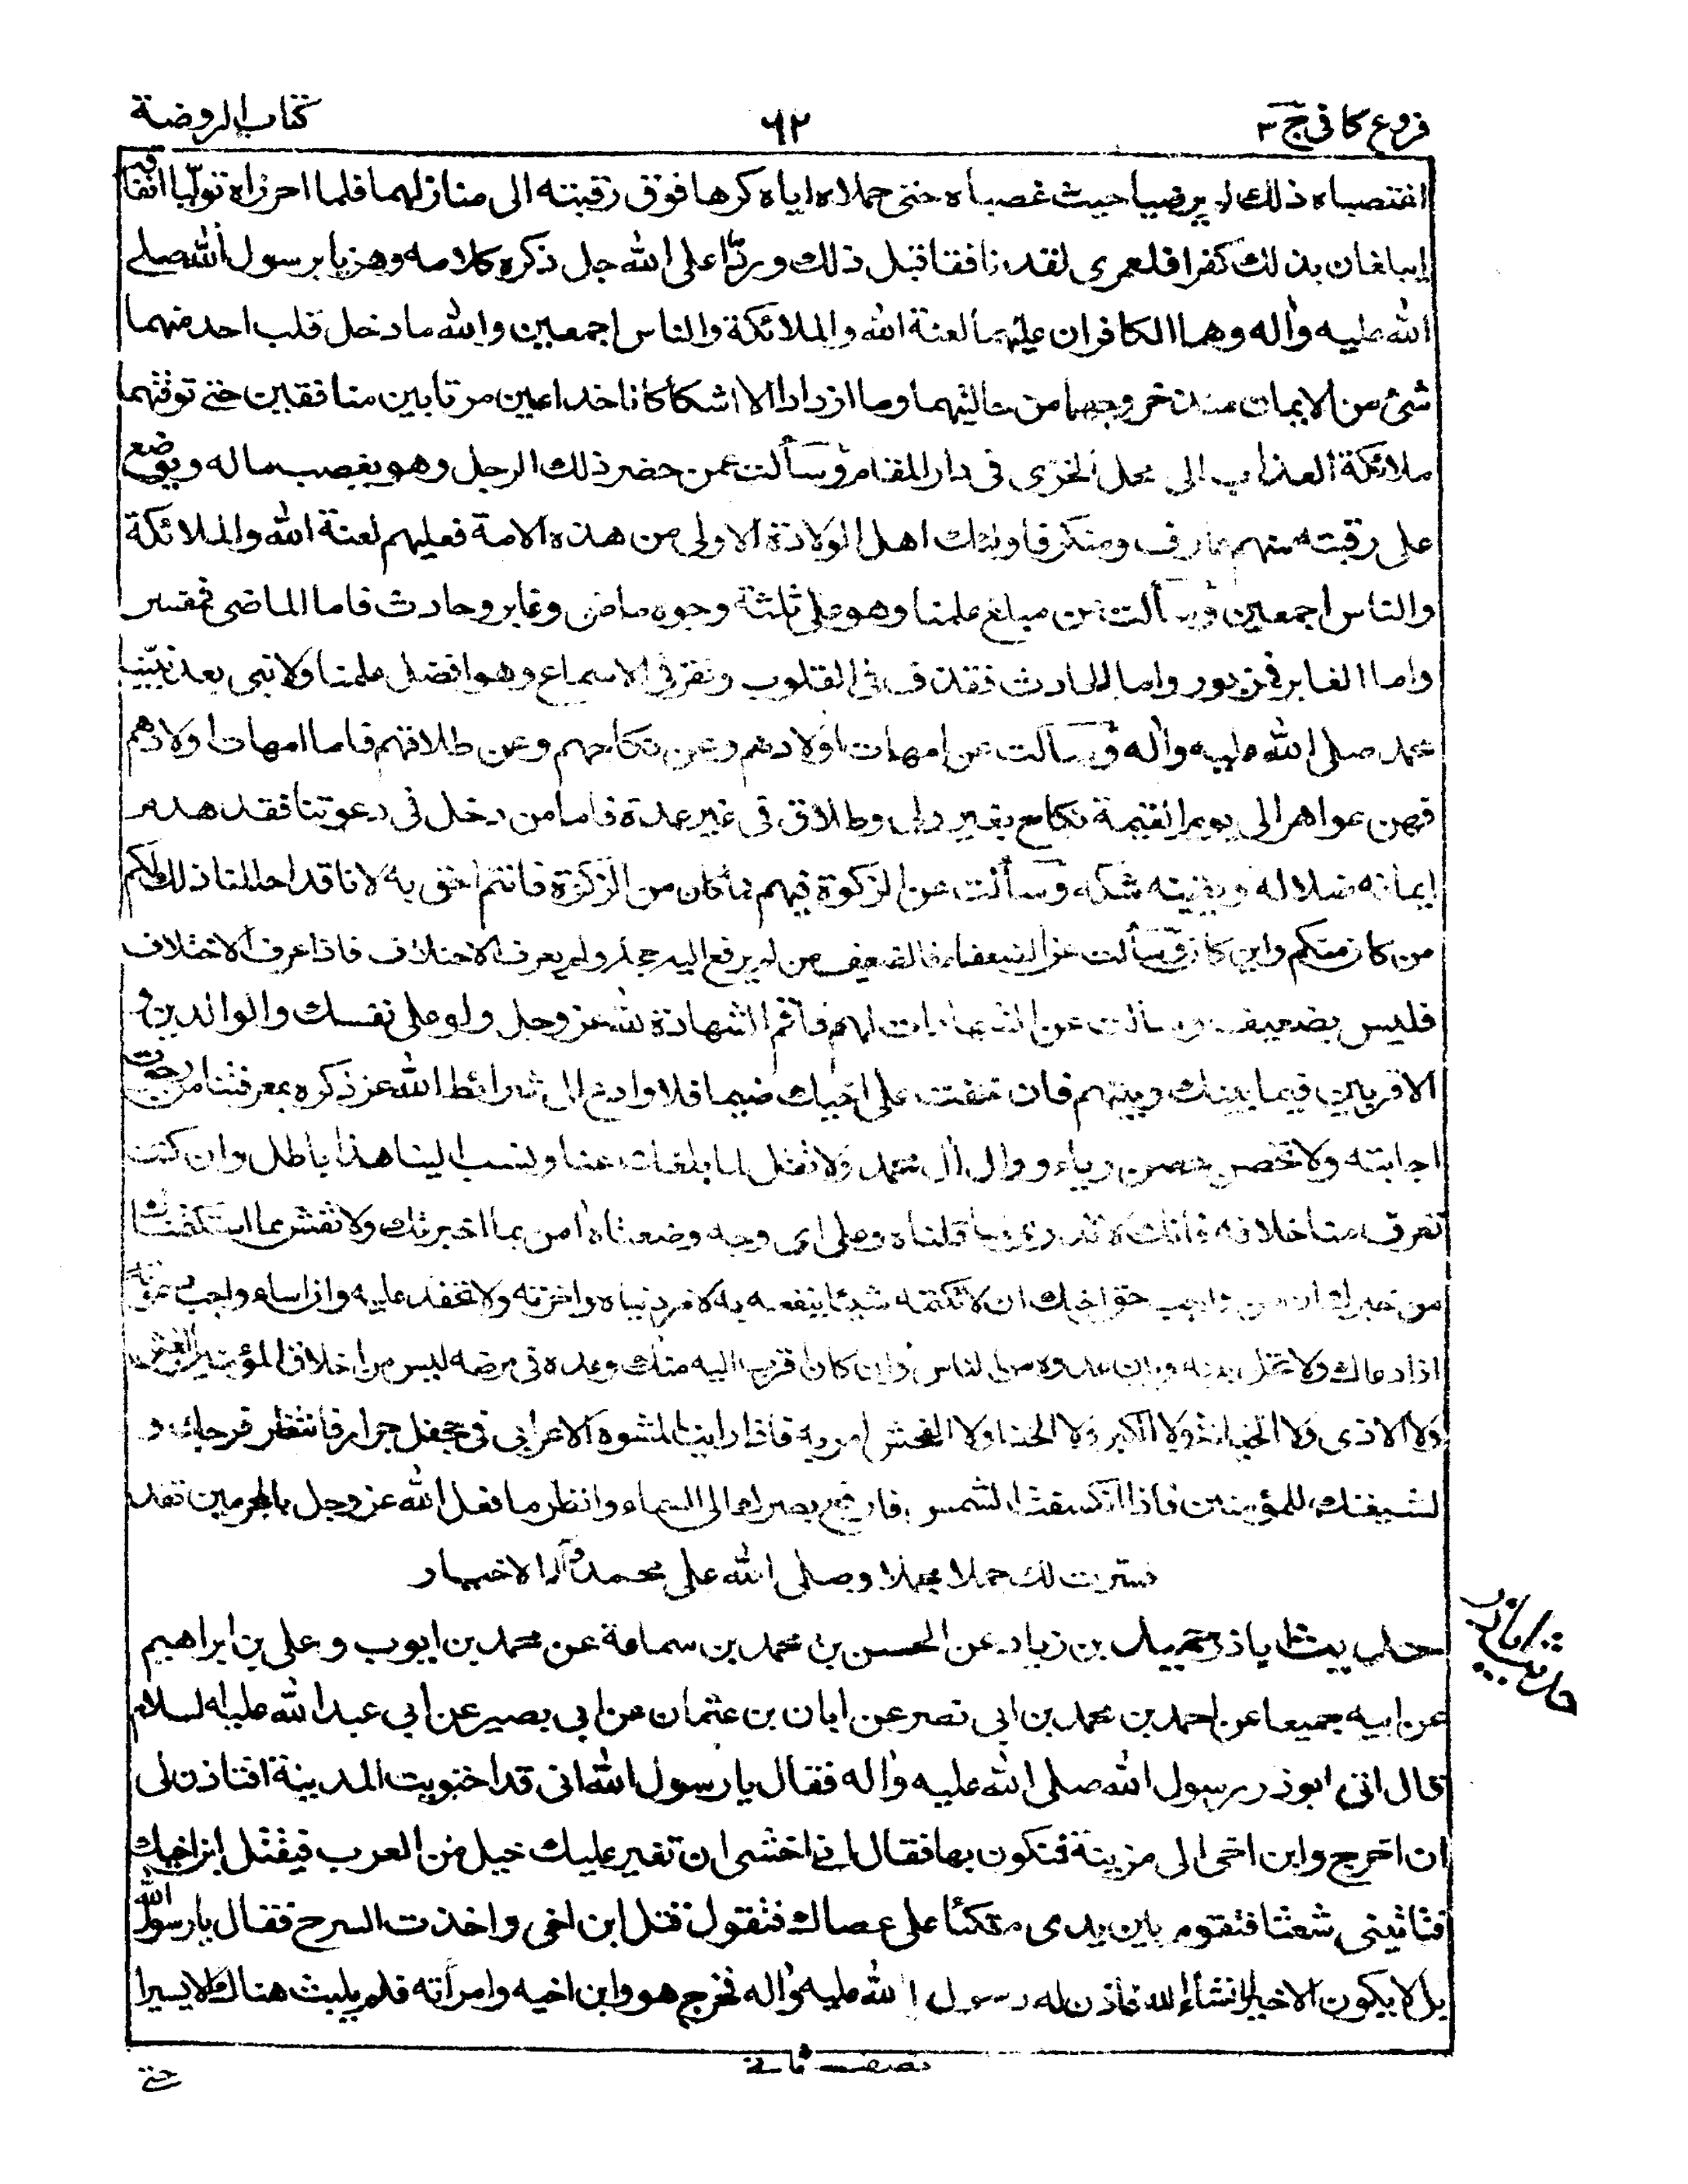 فروع كافي ج ٣
٦٢
كتاب الروضة
اغتصباه ذلك لم يرضيا حيث غصباه حتى حملاه اياه كرها فوق رقبته الى منازلهما فلما احرزاه توليا انفاقه
ايبلغان بذلك كفرا فلعمري لقد نافقا قبل ذلك وردّا على الله جل ذكره كلامه وهزيا برسول الله صلى
الله عليه وآله وهما الكافران عليهما لعنة الله والملائكة والناس اجمعين والله ما دخل قلب احد منهما
شئ من الايمان منذ خروجهما من حالتيهما وما ازدادا الا شكا كانا خداعين مرتابين منافقين حتى توفتهما
ملائكة العذاب الى محل الخزي في دار المقام وسألت عمن حضر ذلك الرجل وهو يغصب ماله ويوضع
على رقبته منهم عارف ومنكر فاولئك اهل الولادة الاولى من هذه الامة فعليهم لعنة الله والملائكة
والناس اجمعين وسألت عن مبلغ علمنا وهو على ثلثة وجوه ماض وغابر وحادث فاما الماضى فمفسر
واما الغابر فمزبور واما الحادث فقذف في القلوب ونقر في الاسماع وهو افضل علمنا ولا نبي بعد نبينا
محمد صلى الله عليه وآله وسألت عن امهات اولادهم وعن نكاحهم وعن طلاقهم فاما امهات اولادهم
فهن عواهر الى يوم القيمة نكاح بغير ولي وطلاق في غير عدة فاما من دخل في دعوتنا فقد هدم
ايمانه ضلاله ويقينه شكه وسألت عن الزكوة فيهم فما كان من الزكوة فانتم احق به لانا قد احللنا ذلك لكم
من كان منكم واين كان وسألت عن الضعفاء فالضعيف من لم يرفع اليه حجة ولم يعرف الاختلاف فاذا عرف الاختلاف
فليس بضعيف وسألت عن الشهادات لهم فاقم الشهادة لله عز وجل ولو على نفسك والوالدين و
الاقربين فيما بينك وبينهم فان خفت على اخيك ضيما فلا وادع الى شرائط الله عز ذكره بمعرفتنا من رجوت
اجابته ولا تحصن بحصن رياء ووال آل محمد ولا تقل لما بلغك عنا ونسب الينا هذا باطل وان كنت
تعرف منا خلافه فانك لا تدري لما قلناه وعلى اي وجه وضعناه آمن بما اخبرتك ولا تفش مما استكتمناك
من خبرك ان من واجب حق اخيك ان لا تكتمه شيئا ينفعه به لامر دنياه واخرته ولا تحقد عليه وان اساء واجب دعوته
اذا دعاك ولا تخل بينه وبين عدوه من الناس وان كان اقرب اليه منك وعده في مرضه ليس من اخلاق المؤمنين الغش
ولا الاذى ولا الخيانة ولا الكبر ولا الخنا ولا الفحش ولا امر به فاذا رايت المشوه الاعرابي في جحفل جرار فانتظر فرجك و
لشيعتك للمؤمنين فاذا انكسفت الشمس فارفع بصرك الى السماء وانظر ما فعل الله عز وجل بالمجرمين فقد
فسرت لك جملا مجملا وصلى الله على محمد وآله الاخيار
حديث اباذر حميد بن زياد عن الحسن بن محمد بن سماعة عن محمد بن ايوب وعلي بن ابراهيم
عن ابيه جميعا عن احمد بن محمد بن ابي نصر عن ابان بن عثمان عن ابي بصير عن ابي عبد الله عليه السلام
قال اتى ابوذر رسول الله صلى الله عليه وآله فقال يا رسول الله اني قد اجتويت المدينة افتاذن لي
ان اخرج وابن اخي الى مزينة فنكون بها فقال اني اخشى ان تغير عليك خيل من العرب فيقتل ابن اخيك
فتاتيني شعثا فتقوم بين يدي متكئا على عصاك فتقول قتل ابن اخي واخذت السرح فقال يا رسول الله
بل لا يكون الا خيرا انشاء الله فاذن له رسول الله عليه وآله فخرج هو وابن اخيه وامرأته فلم يلبث هناك الا يسيرا
حديث اباذر
حتى